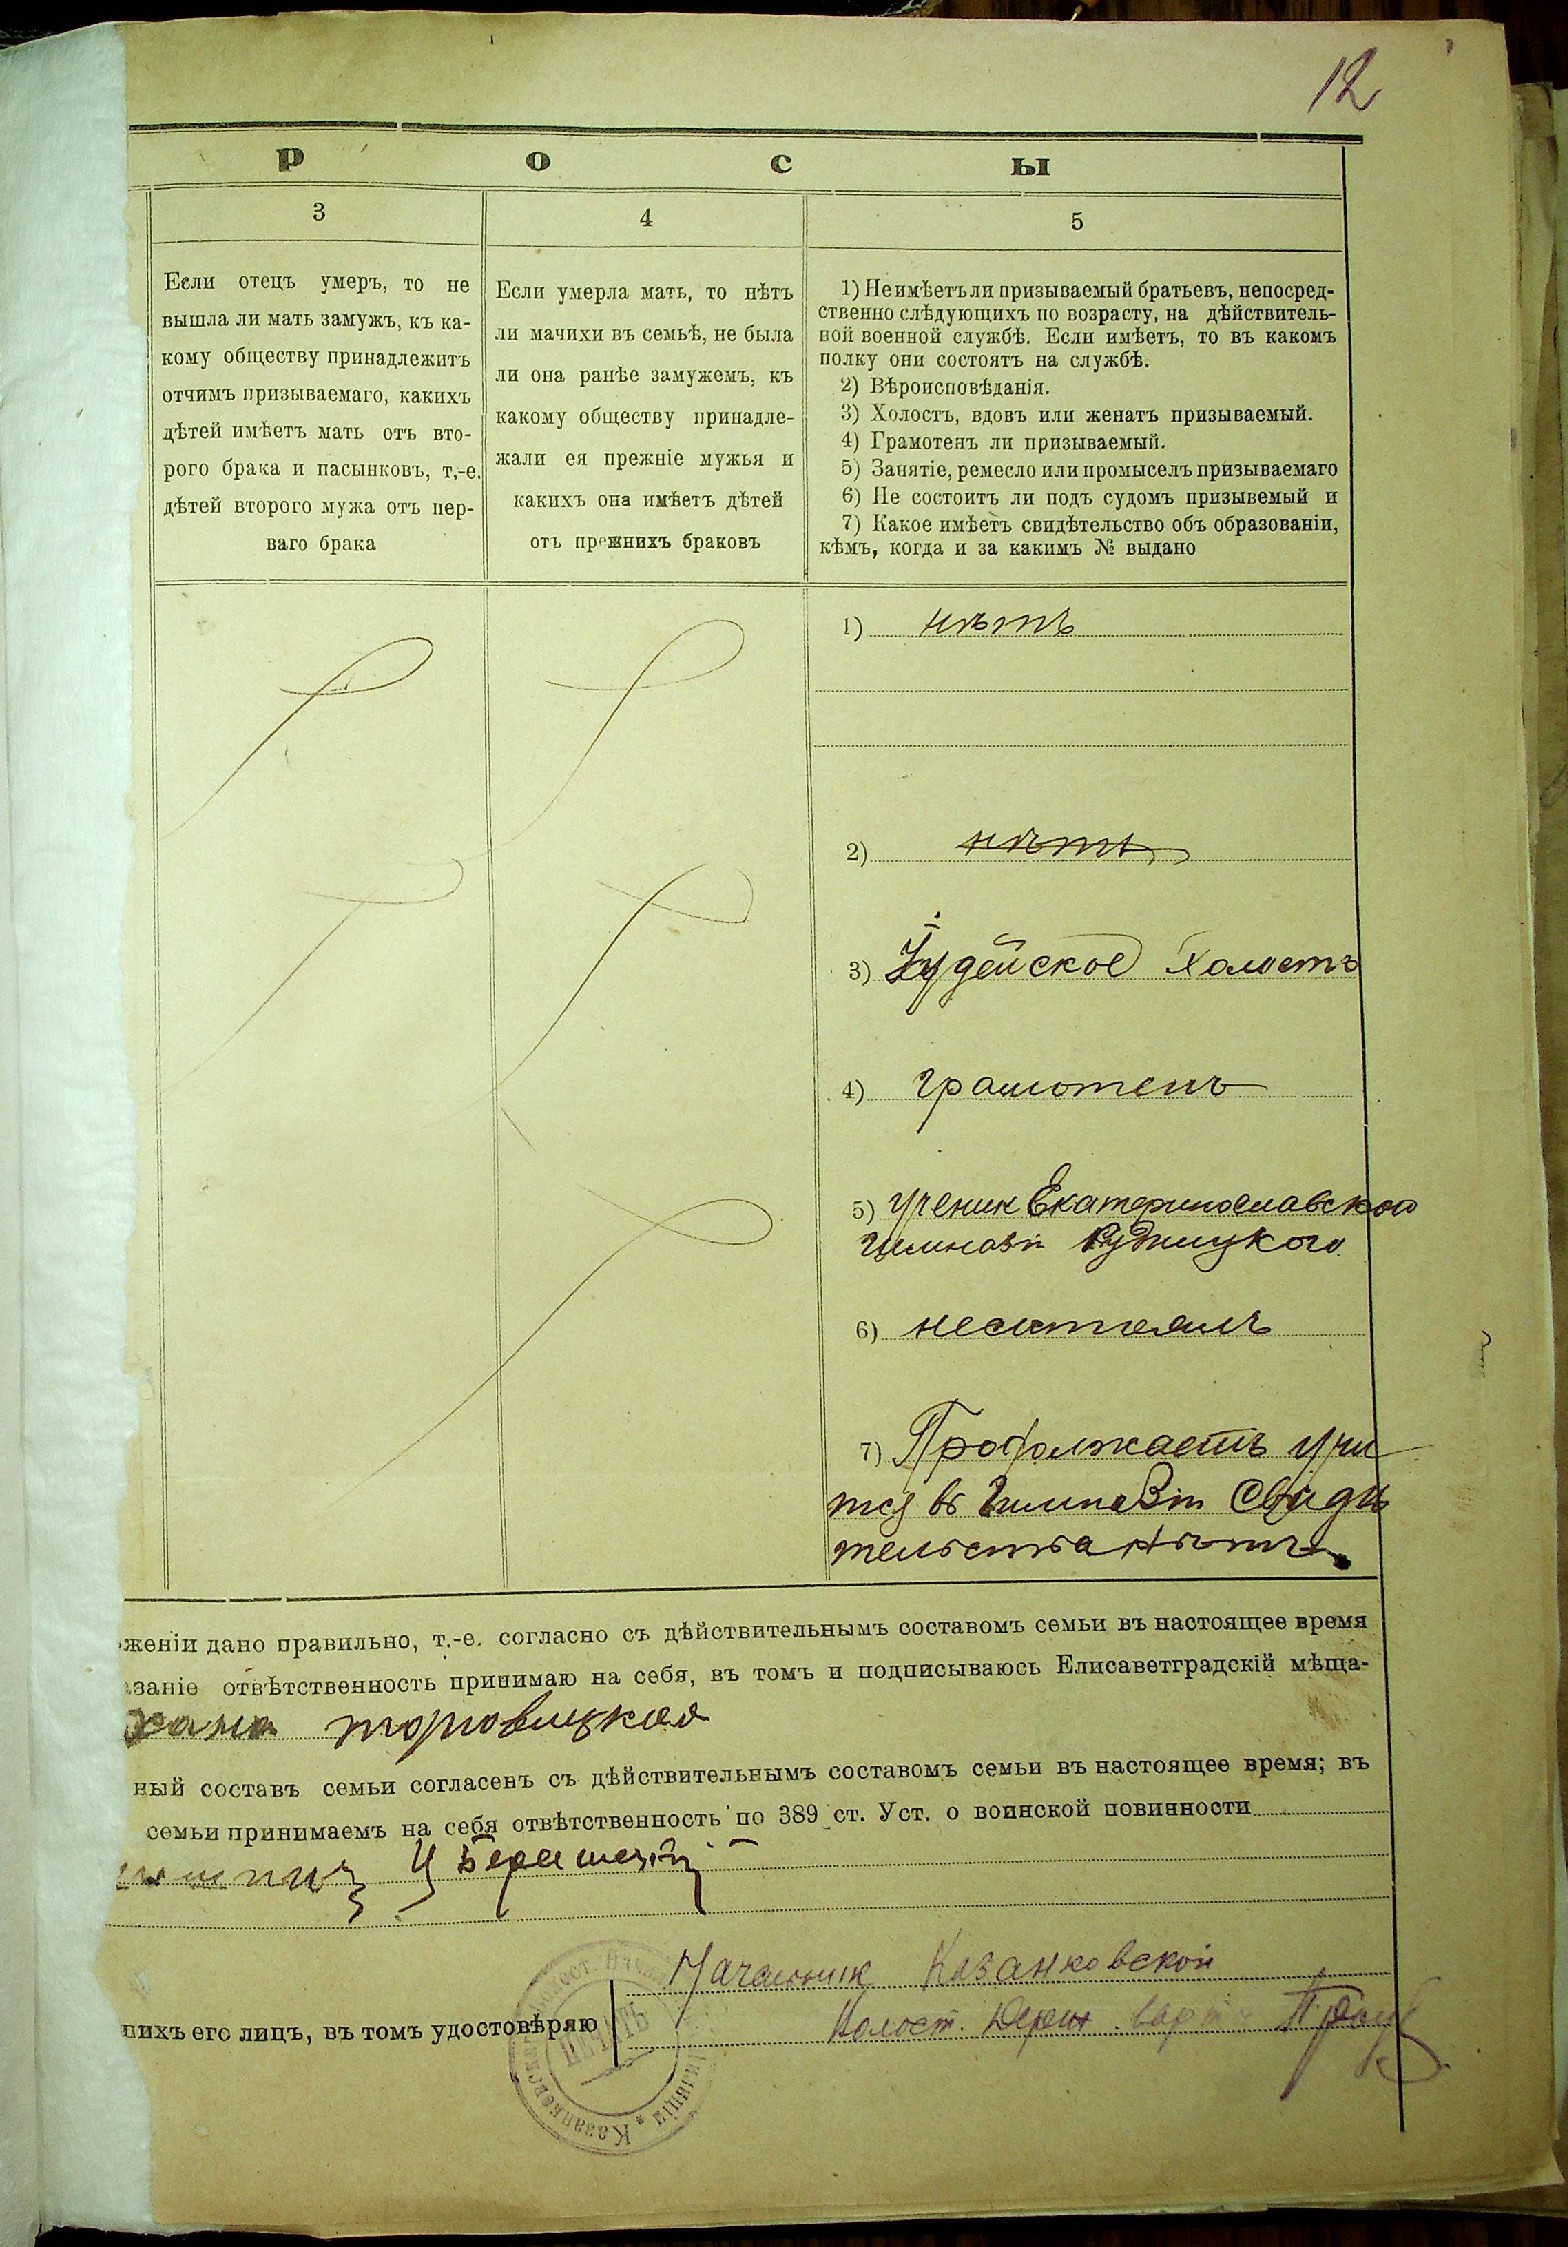 12
Р О С Ы
3
Если отецъ умеръ, то не
вышла ли мать замужъ, къ ка-
кому обществу принадлежитъ
отчимъ призываемаго, какихъ
дѣтей имѣетъ мать отъ вто-
рого брака и пасынковъ, т.-е.
дѣтей второго мужа отъ пер-
ваго брака
4
Если умерла мать, то нѣтъ
ли мачихи въ семьѣ, не была
ли она ранѣе замужемъ, къ
какому обществу принадле-
жали ея прежніе мужья и
какихъ она имѣетъ дѣтей
отъ прежнихъ браковъ
5
1) Не имѣетъ ли призываемый братьевъ, непосред-
ственно слѣдующихъ по возрасту, на дѣйствитель-
ной военной службѣ. Если имѣетъ, то въ какомъ
полку они состоятъ на службѣ.
2) Вѣроисповѣданія.
3) Холостъ, вдовъ или женатъ призываемый.
4) Грамотенъ ли призываемый.
5) Занятіе, ремесло или промыселъ призываемаго
6) Не состоитъ ли подъ судомъ призывемый и
7) Какое имѣетъ свидѣтельство объ образованіи,
кѣмъ, когда и за какимъ № выдано
1) нѣтъ
2) нѣтъ
3) Іудейское Холостъ
4) грамотенъ
5) ученик Екатеринославской
гимназіи Рудницкого
6) несостоялъ
7) Продолжаетъ учи
тся въ Гимназіи Свидѣ
тельства нѣтъ
женіи дано правильно, т.-е. согласно съ дѣйствительнымъ составомъ семьи въ настоящее время
заніе отвѣтственность принимаю на себя, въ томъ и подписываюсь Елисаветградскій мѣща-
хана торговицкая
ный составъ семьи согласенъ съ дѣйствительнымъ составомъ семьи въ настоящее время; въ
семьи принимаемъ на себя отвѣтственность по 389 ст. Уст. о воинской повинности
Начальник Казанковской
пихъ его лицъ, въ томъ удостовѣряю
Волост. Держ. варт
ПЕЧАТЬ